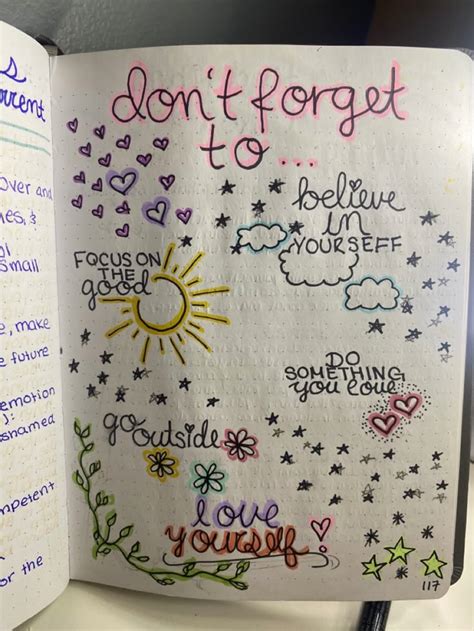 s
rrent
over and
small
e, make
e future
emotion
npetent
or the
don't forget
to...
believe
in
YOURSEFF
FOCUS ON
THE
good
DO
SOMETHING
you love
go outside
love
yourself!
117